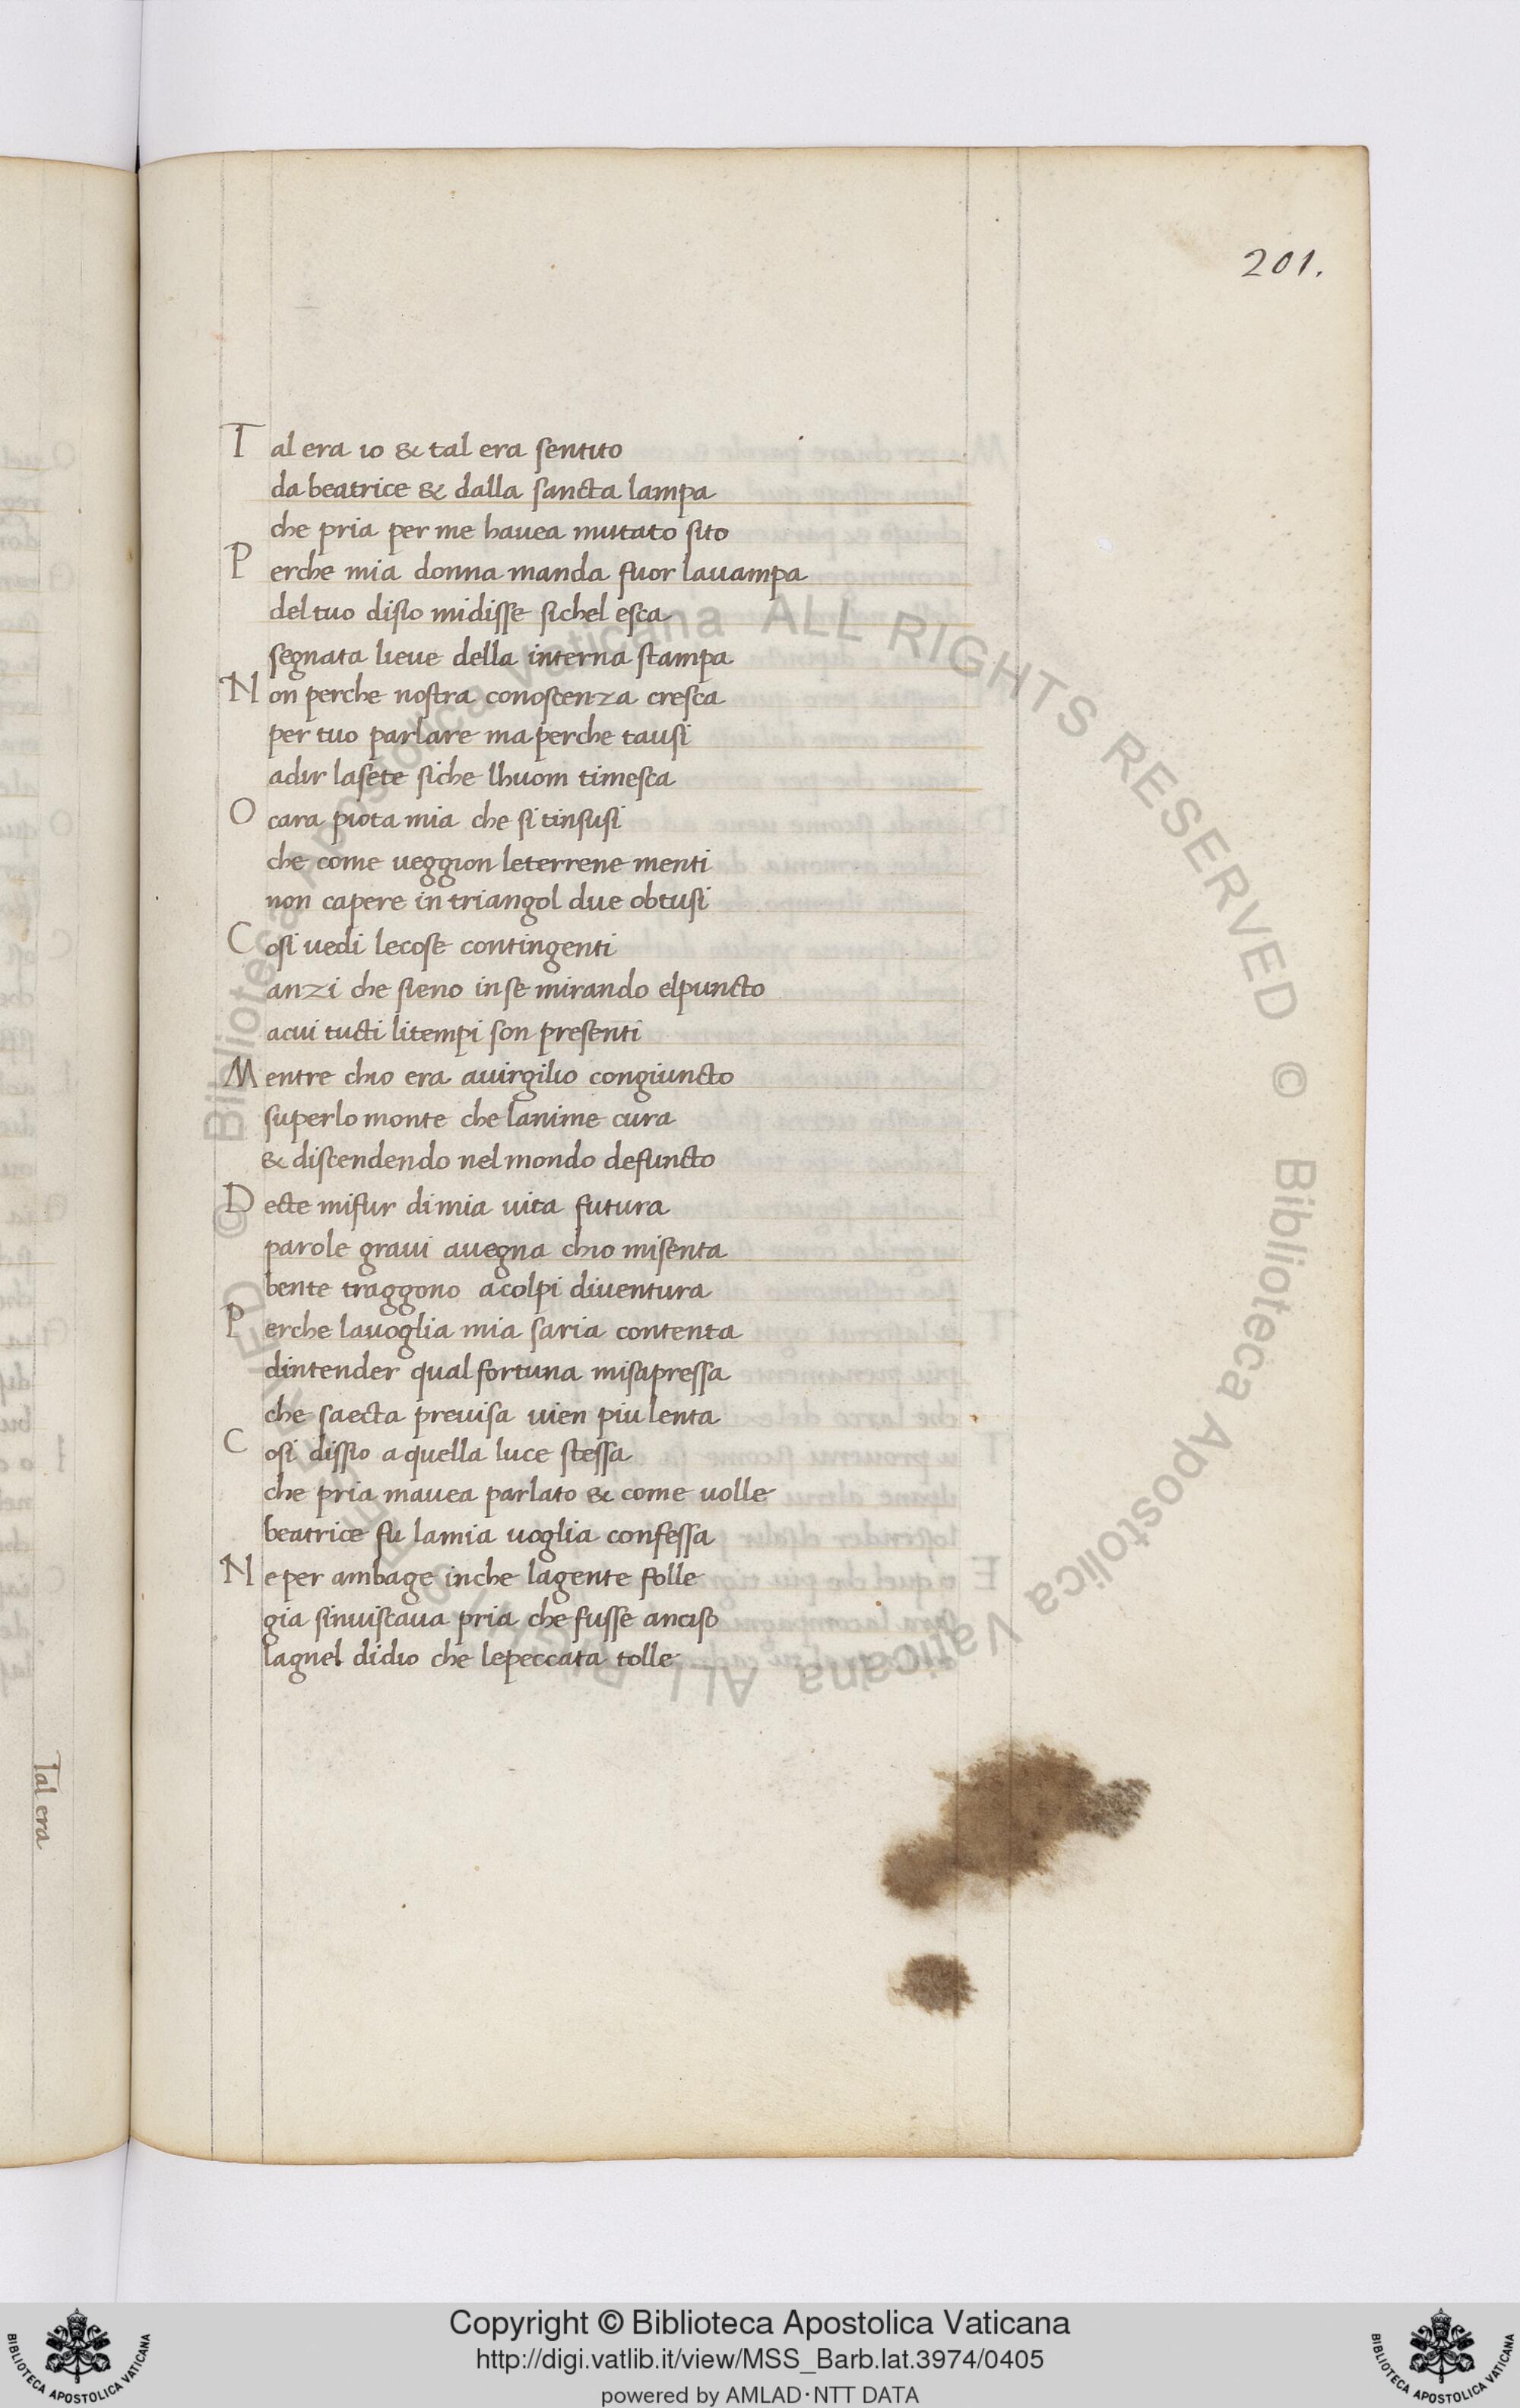 201.
Tal era io & tal era sentito
da beatrice & dalla sancta lampa
che pria per me havea mutato sito
Perche mia donna manda fuor lavampa
del tuo disio midisse sichel esca
segnata lieve della interna stampa
Non perche nostra conoscenza cresca
per tuo parlare ma perche tausi
adir lasete siche lhuom timesca
O cara piota mia che si tinsusi
che come veggion leterrene menti
non capere in triangol due obtusi
Cosi vedi lecose contingenti
anzi che sieno inse mirando elpuncto
acui tucti litempi son presenti
Mentre chio era avirgilio congiuncto
superlo monte che lanime cura
& discendendo nel mondo defuncto
Decte mifur dimia vita futura
parole gravi avegna chio misenta
bente traggono acolpi diventura
Perche lavoglia mia saria contenta
dintender qual fortuna misapressa
che saecta previsa vien piu lenta
Cosi dissio a quella luce stessa
che pria mavea parlato & come volle
beatrice fu lamia voglia confessa
Ne per ambage inche lagente folle
gia sinviscava pria che fusse anciso
lagnel didio che lepeccata tolle
Tal era
© Biblioteca Apostolica Vaticana ALL RIGHTS RESERVED © Biblioteca Apostolica Vaticana ALL RIGHTS RESERVED
Copyright © Biblioteca Apostolica Vaticana
http://digi.vatlib.it/view/MSS_Barb.lat.3974/0405
powered by AMLAD·NTT DATA
BIBLIOTECA APOSTOLICA VATICANA
BIBLIOTECA APOSTOLICA VATICANA